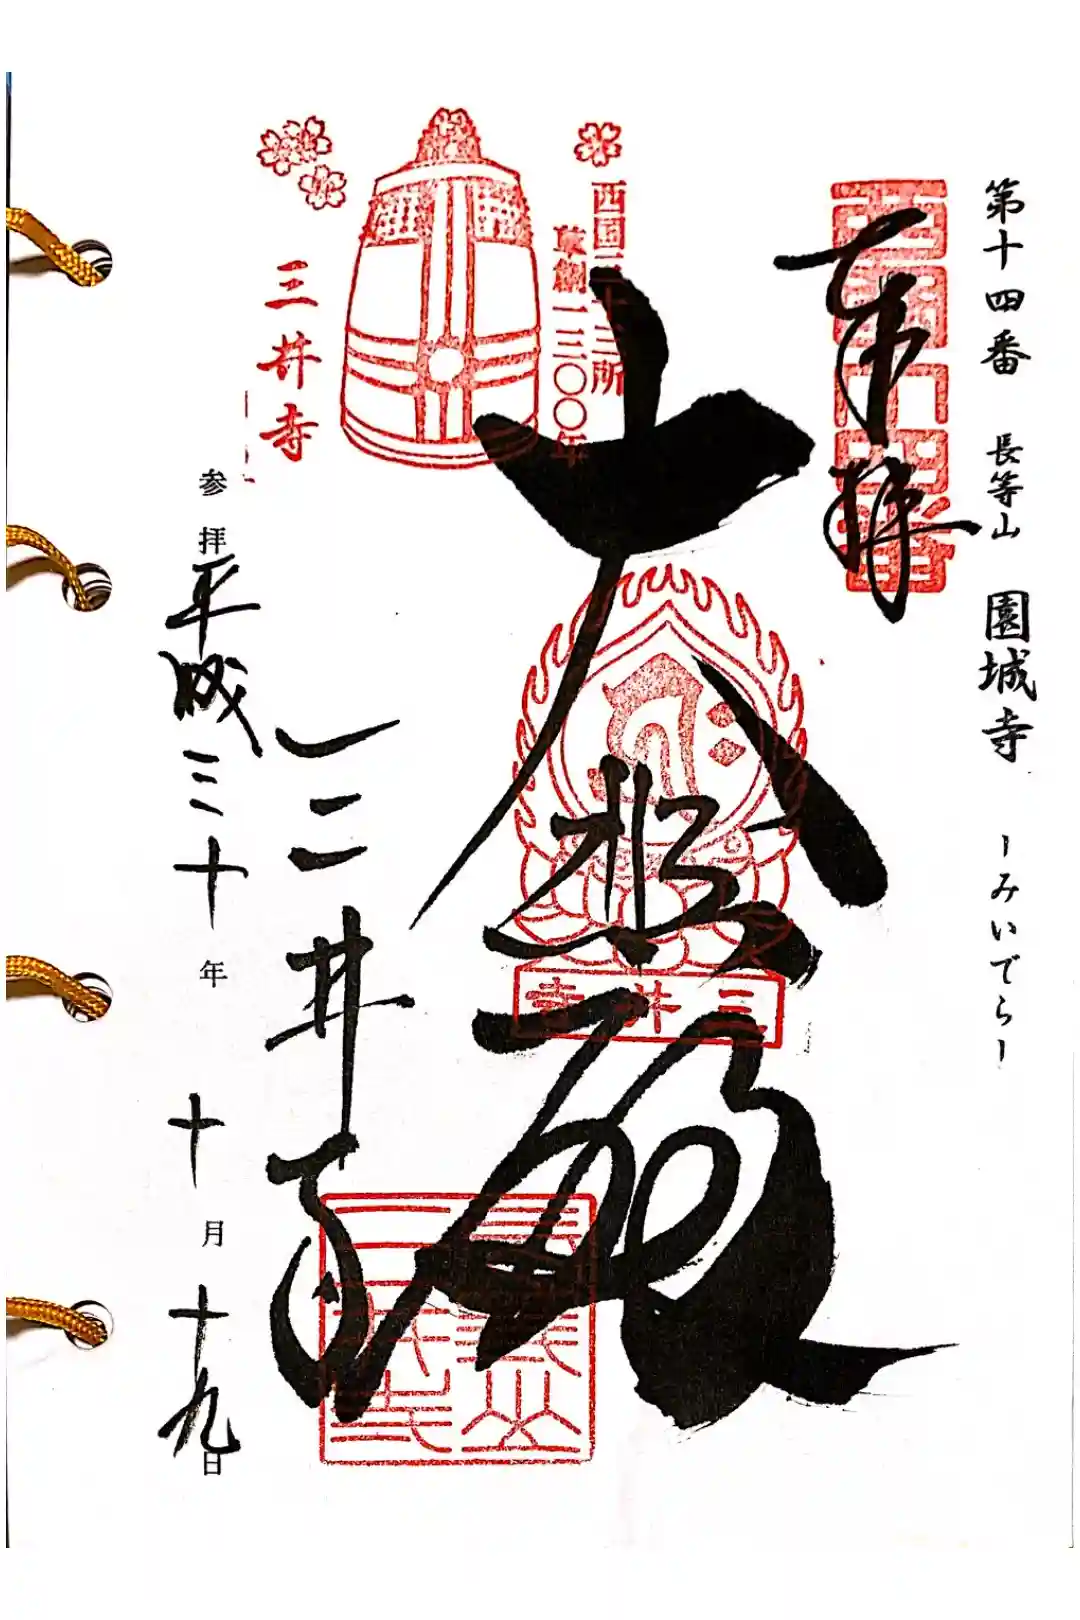 第十四番 長等山 園城寺 ーみいでらー
西国十四番
奉拝
西国三十三所
草創一三〇〇年
大悲殿
三井寺
三井寺
三井寺
長等山
三井寺
参拝平成三十年 十月十九日